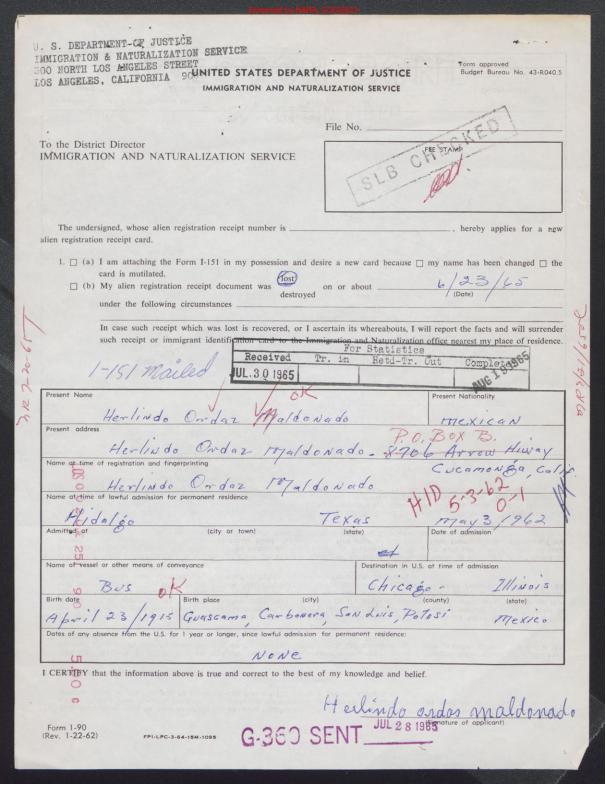 U. S. DEPARTMENT OF JUSTICE
IMMIGRATION & NATURALIZATION SERVICE
300 NORTH LOS ANGELES STREET
LOS ANGELES, CALIFORNIA
UNITED STATES DEPARTMENT OF JUSTICE
IMMIGRATION AND NATURALIZATION SERVICE
Form approved
Budget Bureau No. 43-R040.5
File No.
To the District Director
IMMIGRATION AND NATURALIZATION SERVICE
FEE STAMP
SLB CHECKED
The undersigned, whose alien registration receipt number is , hereby applies for a new
alien registration receipt card.
1. ☐ (a) I am attaching the Form I-151 in my possession and desire a new card because ☐ my name has been changed ☐ the
card is mutilated.
☐ (b) My alien registration receipt document was lost on or about 6/23/65
destroyed
(Date)
under the following circumstances
In case such receipt which was lost is recovered, or I ascertain its whereabouts, I will report the facts and will surrender
such receipt or immigrant identification card to the Immigration and Naturalization office nearest my place of residence.
For Statistics
Received Tr. in Retd-Tr. Out Completed
JUL 30 1965
AUG 1965
I-151 mailed
OK
Present Name
Present Nationality
Herlindo Ordaz Maldonado
mexican
Present address
P.O. Box B.
Herlindo Ordaz Maldonado - 8706 Arrow Hiway
Cucamonga, Calif
Name at time of registration and fingerprinting
Herlindo Ordaz Maldonado
HID 5-3-62
0-1
Name at time of lawful admission for permanent residence
Hidalgo Texas may 3/1962
Admitted at (city or town) (state) Date of admission
Name of vessel or other means of conveyance
Destination in U.S. at time of admission
Bus
OK
Chicago - Illinois
Birth date Birth place (city) (county) (state)
April 23/1915 Guascama, Carbonera, San Luis, Potosi Mexico
Dates of any absence from the U.S. for 1 year or longer, since lawful admission for permanent residence:
NONE
I CERTIFY that the information above is true and correct to the best of my knowledge and belief.
Herlindo ordas maldonado
(Signature of applicant)
JUL 28 1965
G-360 SENT
Form I-90
(Rev. 1-22-62)
FPI-LPC-3-64-15M-1095